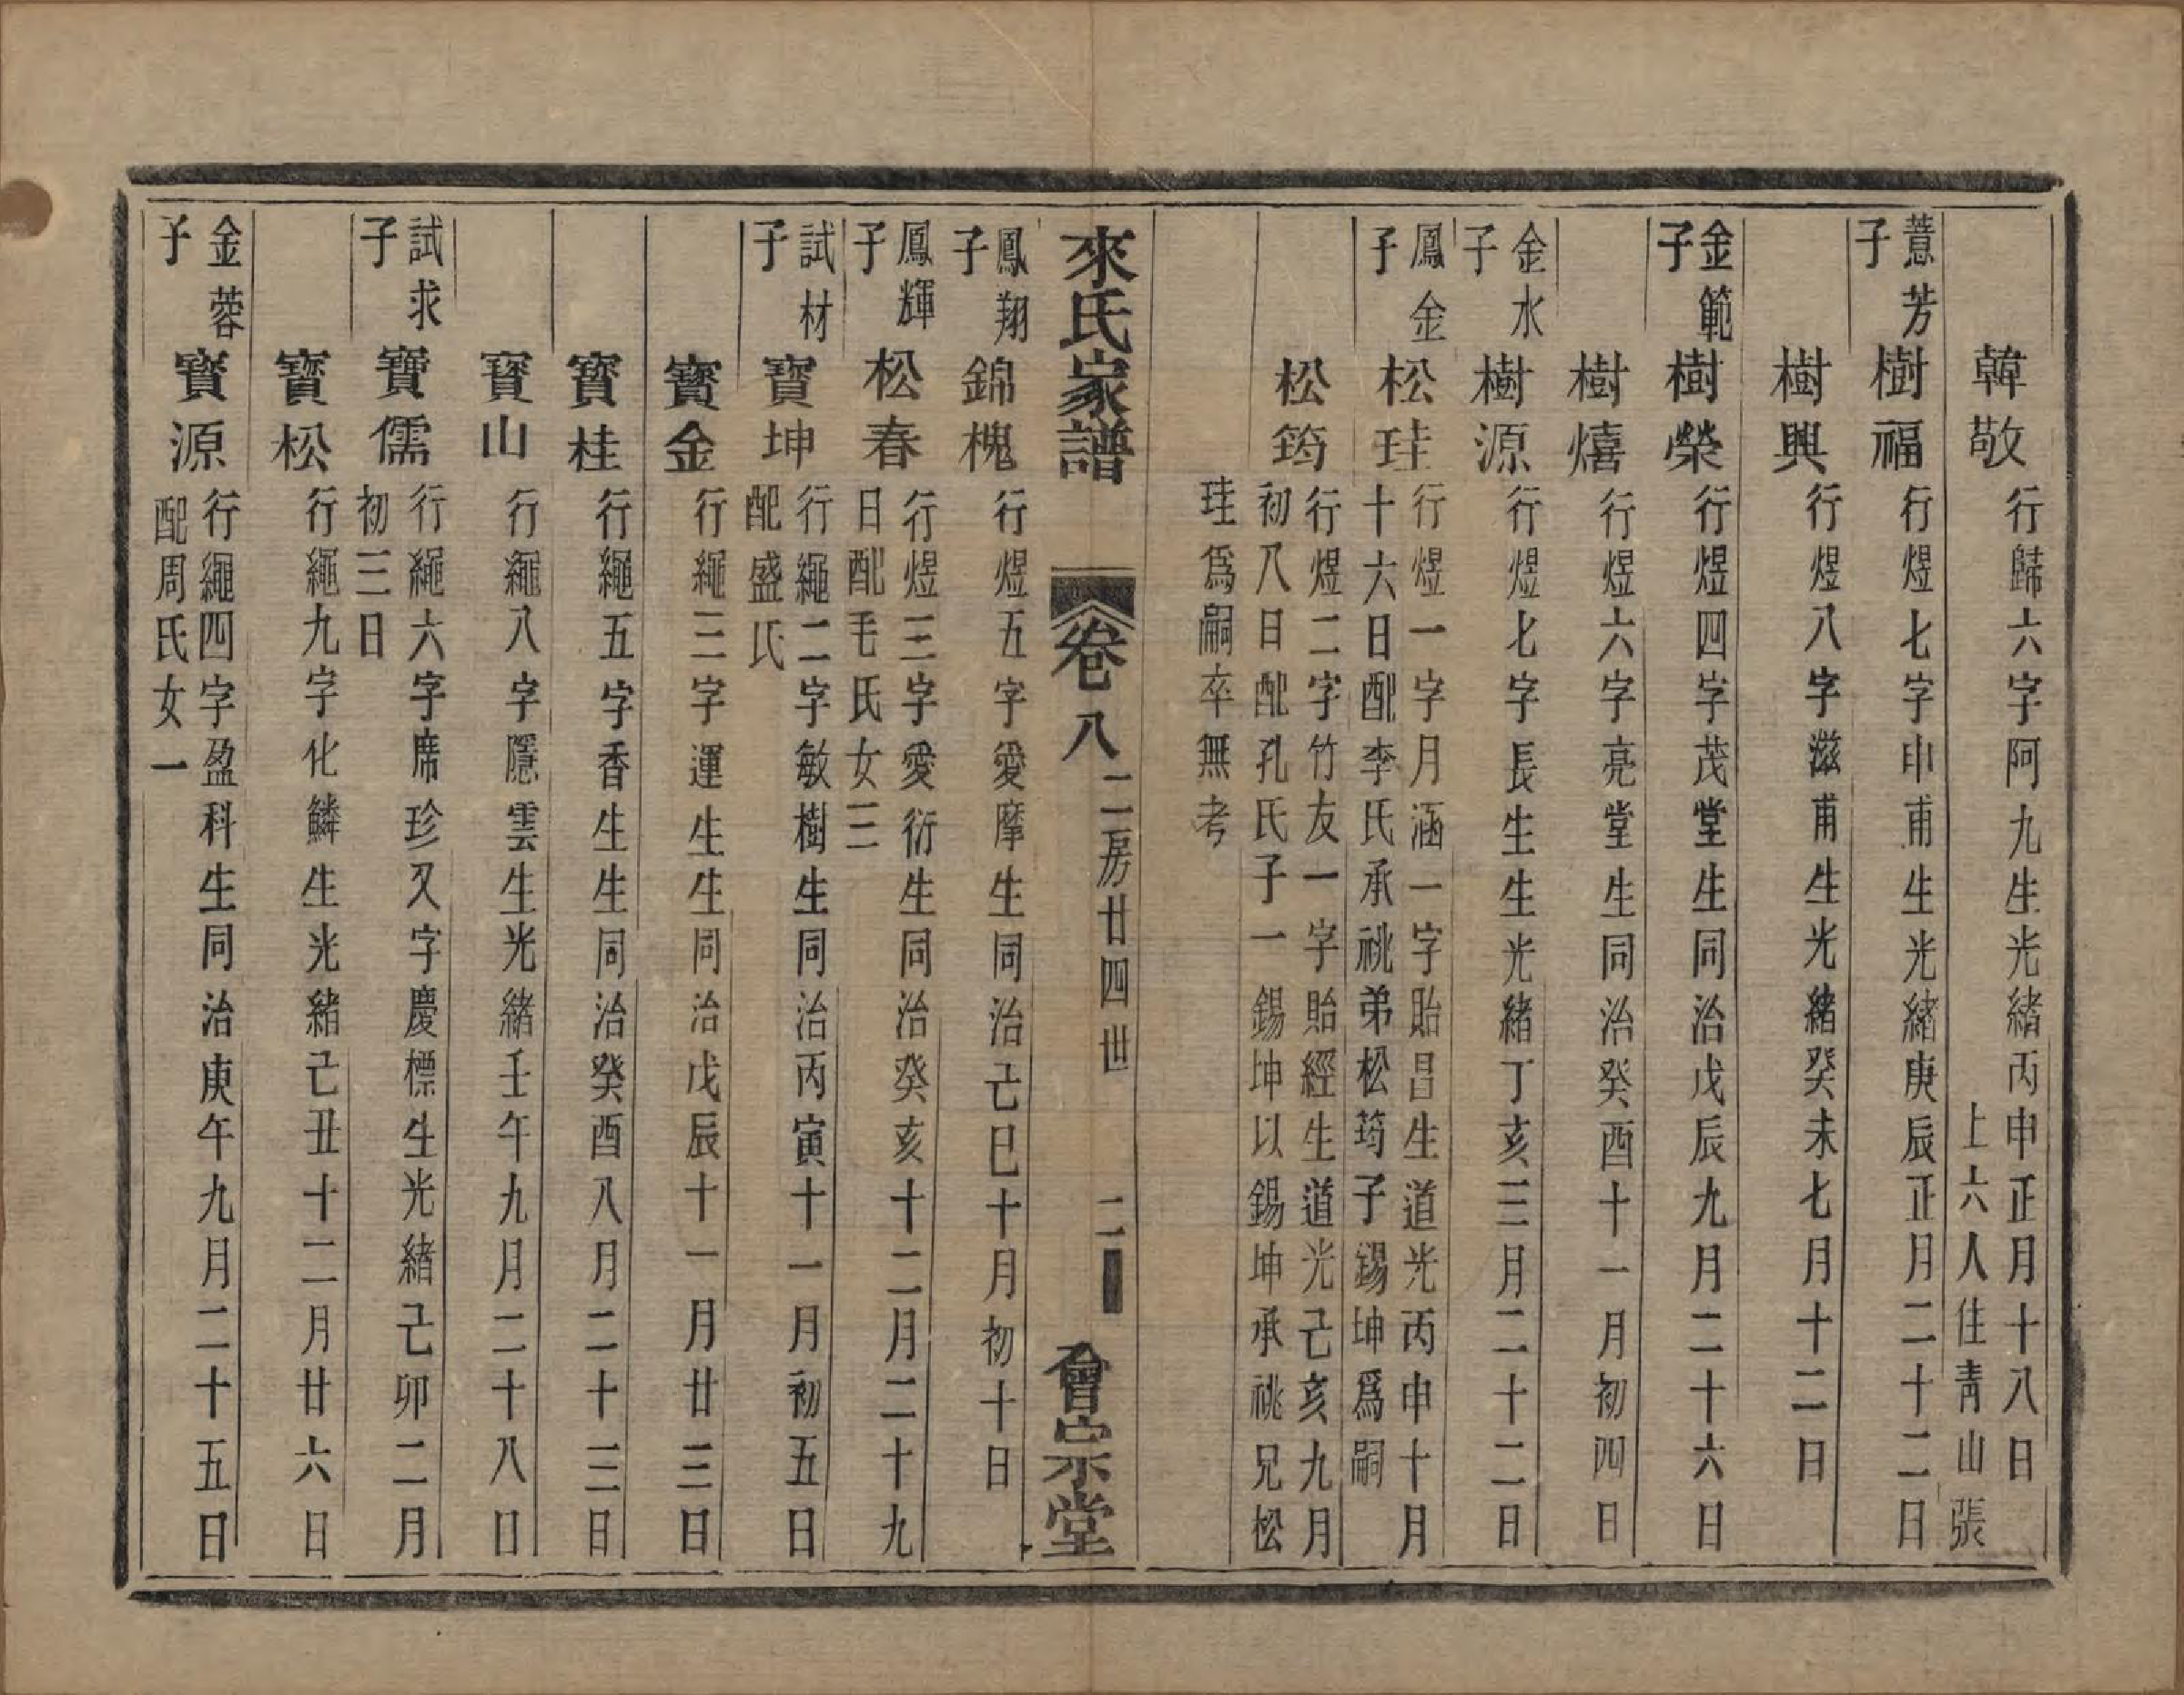 韓敬
行歸六字阿九生光緒丙申正月十八日
上六人住青山張
薏芳
子
樹福
行煜七字申甫生光緒庚辰正月二十二日
樹興
行煜八字滋甫生光緒癸未七月十二日
金範
子
樹榮
行煜四字茂堂生同治戊辰九月二十六日
樹熺
行煜六字亮堂生同治癸酉十一月初四日
金水
子
樹源
行煜七字長生生光緒丁亥三月二十二日
鳳金
子
松珪
行煜一字月涵一字貽昌生道光丙申十月
十六日配李氏承祧弟松筠子錫坤爲嗣
松筠
行煜二字竹友一字貽經生道光己亥九月
初八日配孔氏子一錫坤以錫坤承祧兄松
珪爲嗣卒無考
來氏家譜
卷八
二房廿四世
二
會宗堂
鳳翔
子
錦槐
行煜五字愛摩生同治己巳十月初十日
鳳輝
子
松春
行煜三字愛衍生同治癸亥十二月二十九
日配毛氏女三
試材
子
寶坤
行繩二字敏樹生同治丙寅十一月初五日
配盛氏
寶金
行繩三字運生生同治戊辰十一月廿三日
寶桂
行繩五字香生生同治癸酉八月二十三日
寶山
行繩八字隱雲生光緒壬午九月二十八日
試求
子
寶儒
行繩六字席珍又字慶標生光緒己卯二月
初三日
寶松
行繩九字化鱗生光緒己丑十二月廿六日
金蓉
子
寶源
行繩四字盈科生同治庚午九月二十五日
配周氏女一